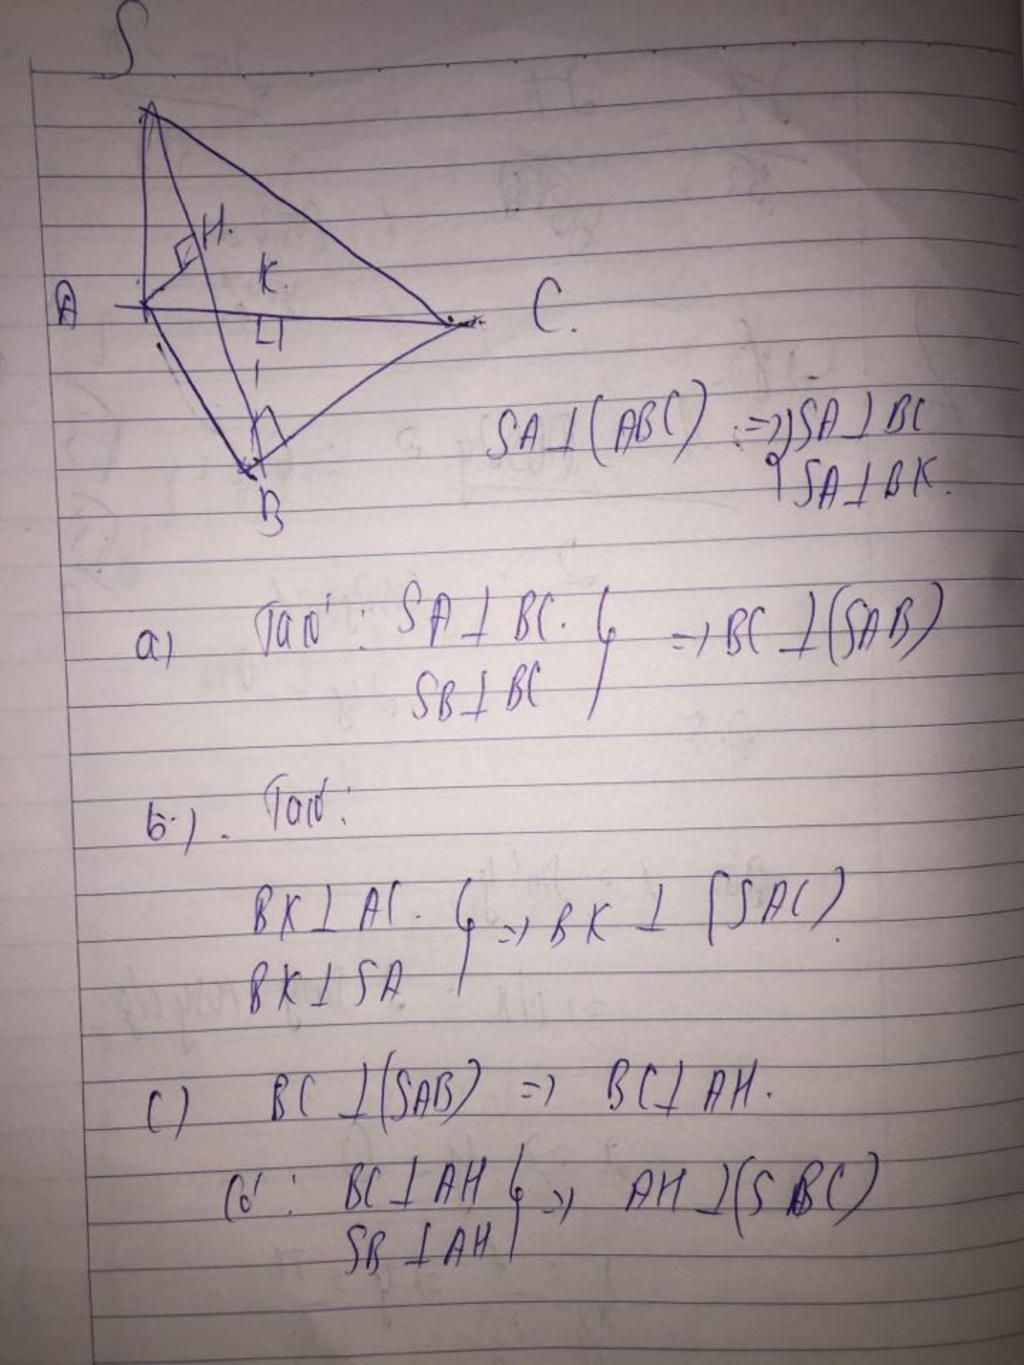 S
H.
K.
A
C.
B
SA⊥(ABC) => { SA⊥BC
SA⊥BK.
a) Ta có: SA⊥BC. } => BC⊥(SAB)
SB⊥BC
b). Ta có:
BK⊥AC. } => BK ⊥ (SAC).
BK⊥SA
c) BC⊥(SAB) => BC⊥AH.
Có: BC⊥AH } => AH⊥(SBC)
SB⊥AH